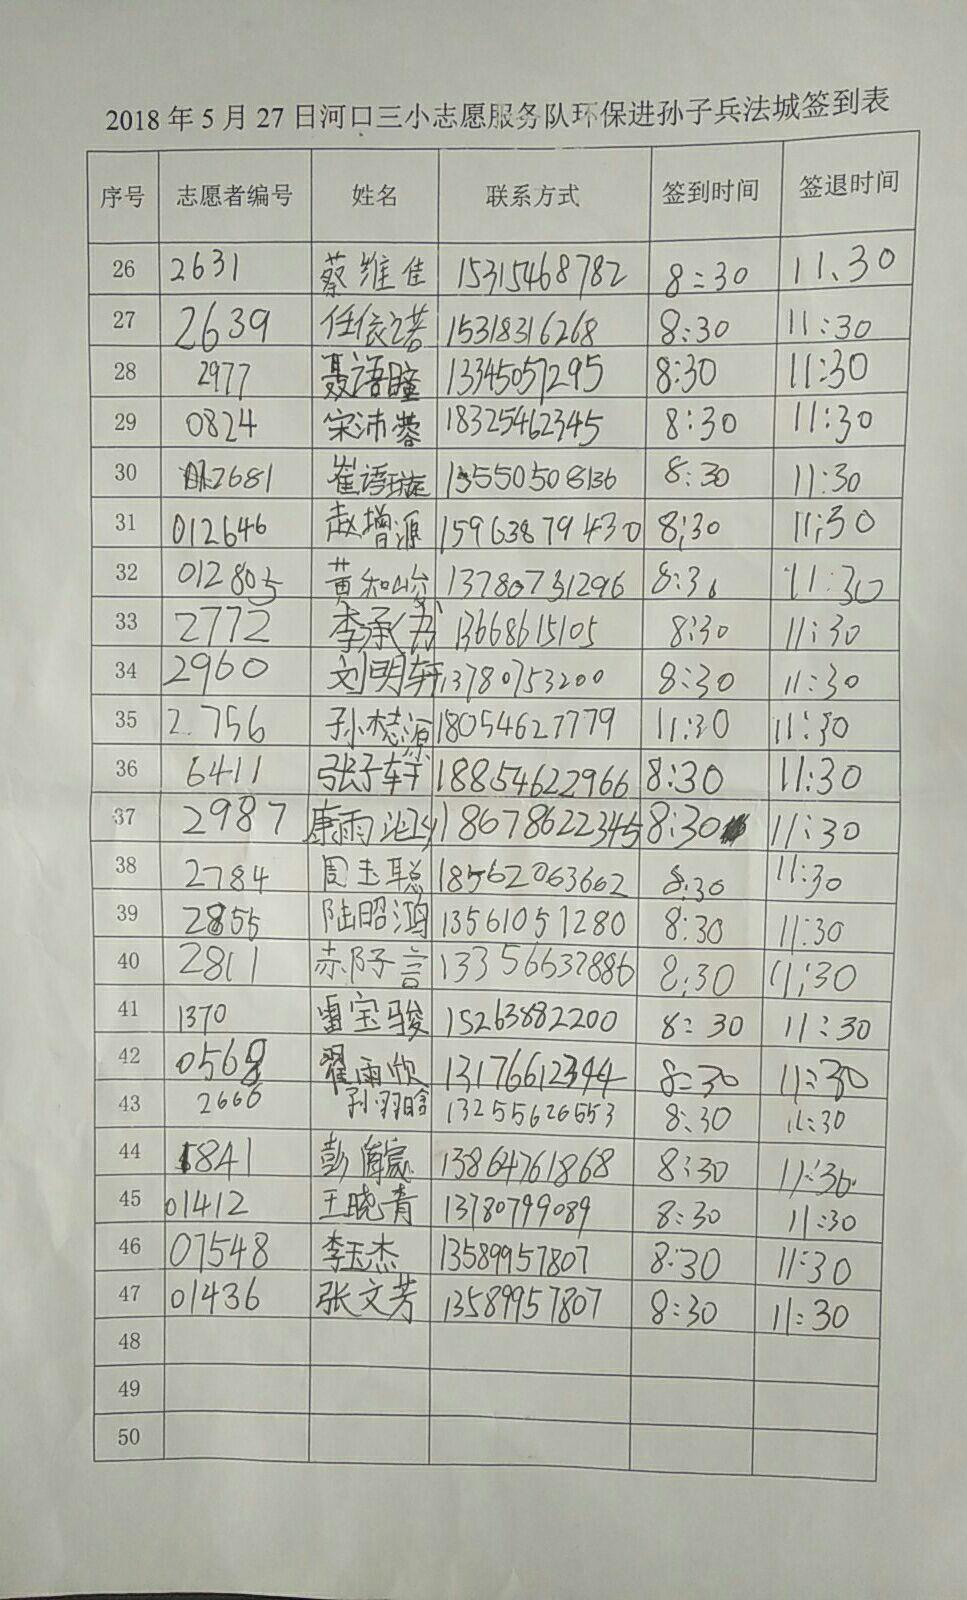 2018年5月27日河口三小志愿服务队环保进孙子兵法城签到表
序号 志愿者编号 姓名 联系方式 签到时间 签退时间
26 2631 蔡维佳 15315468782 8:30 11.30
27 2639 任依诺 15318316268 8:30 11:30
28 2977 聂语瞳 13345057295 8:30 11:30
29 0824 宋沛蓉 18325462345 8:30 11:30
30 2681 崔语璇 15550508136 8:30 11:30
31 012646 赵增源 15963879430 8:30 11:30
32 012805 黄知峻 13780731296 8:30 11:30
33 2772 李承 13668615105 8:30 11:30
34 2960 刘明轩 13780753200 8:30 11:30
35 2.756 孙志源 18054627779 11:30 11:30
36 6411 张子轩 18854622966 8:30 11:30
37 2987 康雨 18678622345 8:30 11:30
38 2784 周玉聪 18562063662 8:30 11:30
39 2855 陆昭鸿 13561051280 8:30 11:30
40 2811 13356637886 8:30 11:30
41 1370 雷宝骏 15263882200 8:30 11:30
42 0568 翟雨欣 13176612344 8:30 11:30
43 2666 孙羽晗 13255626553 8:30 11:30
44 1841 彭 13864761868 8:30 11:30
45 01412 王晓青 13780799089 8:30 11:30
46 07548 李玉杰 13589957807 8:30 11:30
47 01436 张文芳 13589957807 8:30 11:30
48
49
50